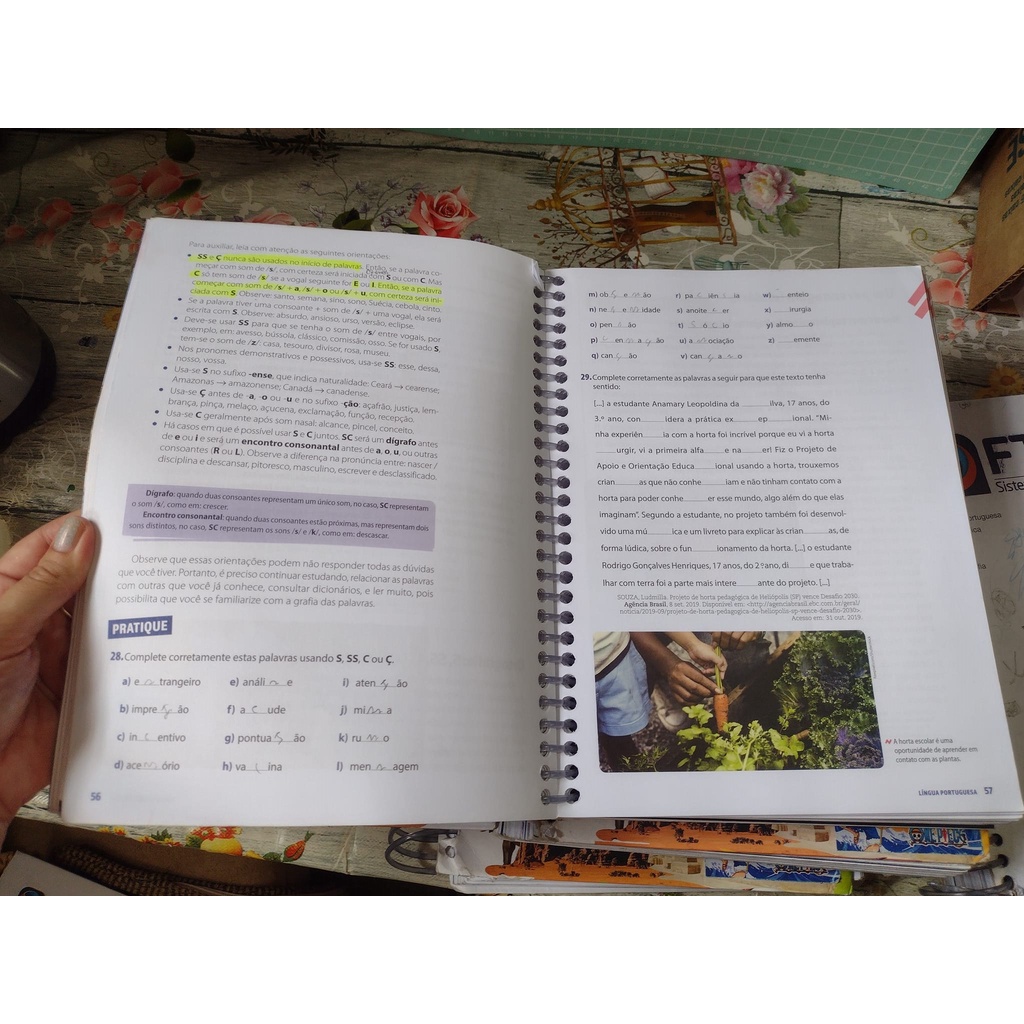 Para auxiliar, leia com atenção as seguintes orientações:
• SS e Ç nunca são usados no início de palavras. Então, se a palavra co-
meçar com som de /s/, com certeza será iniciada com S ou com C. Mas
C só tem som de /s/ se a vogal seguinte for E ou I. Então, se a palavra
começar com som de /s/ + a, /s/ + o ou /s/ + u, com certeza será ini-
ciada com S. Observe: santo, semana, sino, sono, Suécia, cebola, cinto.
• Se a palavra tiver uma consoante + som de /s/ + uma vogal, ela será
escrita com S. Observe: absurdo, ansioso, urso, versão, eclipse.
• Deve-se usar SS para que se tenha o som de /s/ entre vogais, por
exemplo, em: avesso, bússola, clássico, comissão, osso. Se for usado S,
tem-se o som de /z/: casa, tesouro, divisor, rosa, museu.
• Nos pronomes demonstrativos e possessivos, usa-se SS: esse, dessa,
nosso, vossa.
• Usa-se S no sufixo -ense, que indica naturalidade: Ceará → cearense;
Amazonas → amazonense; Canadá → canadense.
• Usa-se Ç antes de -a, -o ou -u e no sufixo -ção: açafrão, justiça, lem-
brança, pinça, melaço, açucena, exclamação, função, recepção.
• Usa-se C geralmente após som nasal: alcance, pincel, conceito.
• Há casos em que é possível usar S e C juntos. SC será um dígrafo antes
de e ou i e será um encontro consonantal antes de a, o, u, ou outras
consoantes (R ou L). Observe a diferença na pronúncia entre: nascer /
disciplina e descansar, pitoresco, masculino, escrever e desclassificado.
Dígrafo: quando duas consoantes representam um único som, no caso, SC representam
o som /s/, como em: crescer.
Encontro consonantal: quando duas consoantes estão próximas, mas representam dois
sons distintos, no caso, SC representam os sons /s/ e /k/, como em: descascar.
Observe que essas orientações podem não responder todas as dúvidas
que você tiver. Portanto, é preciso continuar estudando, relacionar as palavras
com outras que você já conhece, consultar dicionários, e ler muito, pois
possibilita que você se familiarize com a grafia das palavras.
PRATIQUE
28. Complete corretamente estas palavras usando S, SS, C ou Ç.
a) e s trangeiro e) análi s e i) aten ç ão
b) impre ç ão f) a c ude j) mi ss a
c) in c entivo g) pontua ç ão k) ru ss o
d) ace ss ório h) va c ina l) men s agem
56
m) ob s e ss ão r) pa c iên c ia w) ____ enteio
n) ne c e ss idade s) anoite c er x) ____ irurgia
o) pen s ão t) s ó c io y) almo ____ o
p) en a ç ão u) a ss ociação z) ____ emente
q) can ç ão v) can ç a s o
29. Complete corretamente as palavras a seguir para que este texto tenha
sentido:
[...] a estudante Anamary Leopoldina da ____ ilva, 17 anos, do
3.º ano, con ____ idera a prática ex ____ ep ____ ional. "Mi-
nha experiên ____ ia com a horta foi incrível porque eu vi a horta
____ urgir, vi a primeira alfa ____ e na ____ er! Fiz o Projeto de
Apoio e Orientação Educa ____ ional usando a horta, trouxemos
crian ____ as que não conhe ____ iam e não tinham contato com a
horta para poder conhe ____ er esse mundo, algo além do que elas
imaginam". Segundo a estudante, no projeto também foi desenvol-
vido uma mú ____ ica e um livreto para explicar às crian ____ as, de
forma lúdica, sobre o fun ____ ionamento da horta. [...] o estudante
Rodrigo Gonçalves Henriques, 17 anos, do 2.º ano, di ____ e que traba-
lhar com terra foi a parte mais intere ____ ante do projeto. [...]
SOUZA, Ludmilla. Projeto de horta pedagógica de Heliópolis (SP) vence Desafio 2030.
Agência Brasil, 8 set. 2019. Disponível em: <http://agenciabrasil.ebc.com.br/geral/
noticia/2019-09/projeto-de-horta-pedagogica-de-heliopolis-sp-vence-desafio-2030>.
Acesso em: 31 out. 2019.
A horta escolar é uma
oportunidade de aprender em
contato com as plantas.
LÍNGUA PORTUGUESA 57
FT
Siste